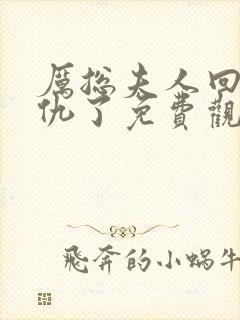 厲總夫人回
仇了免費觀
飛奔的小蝸牛